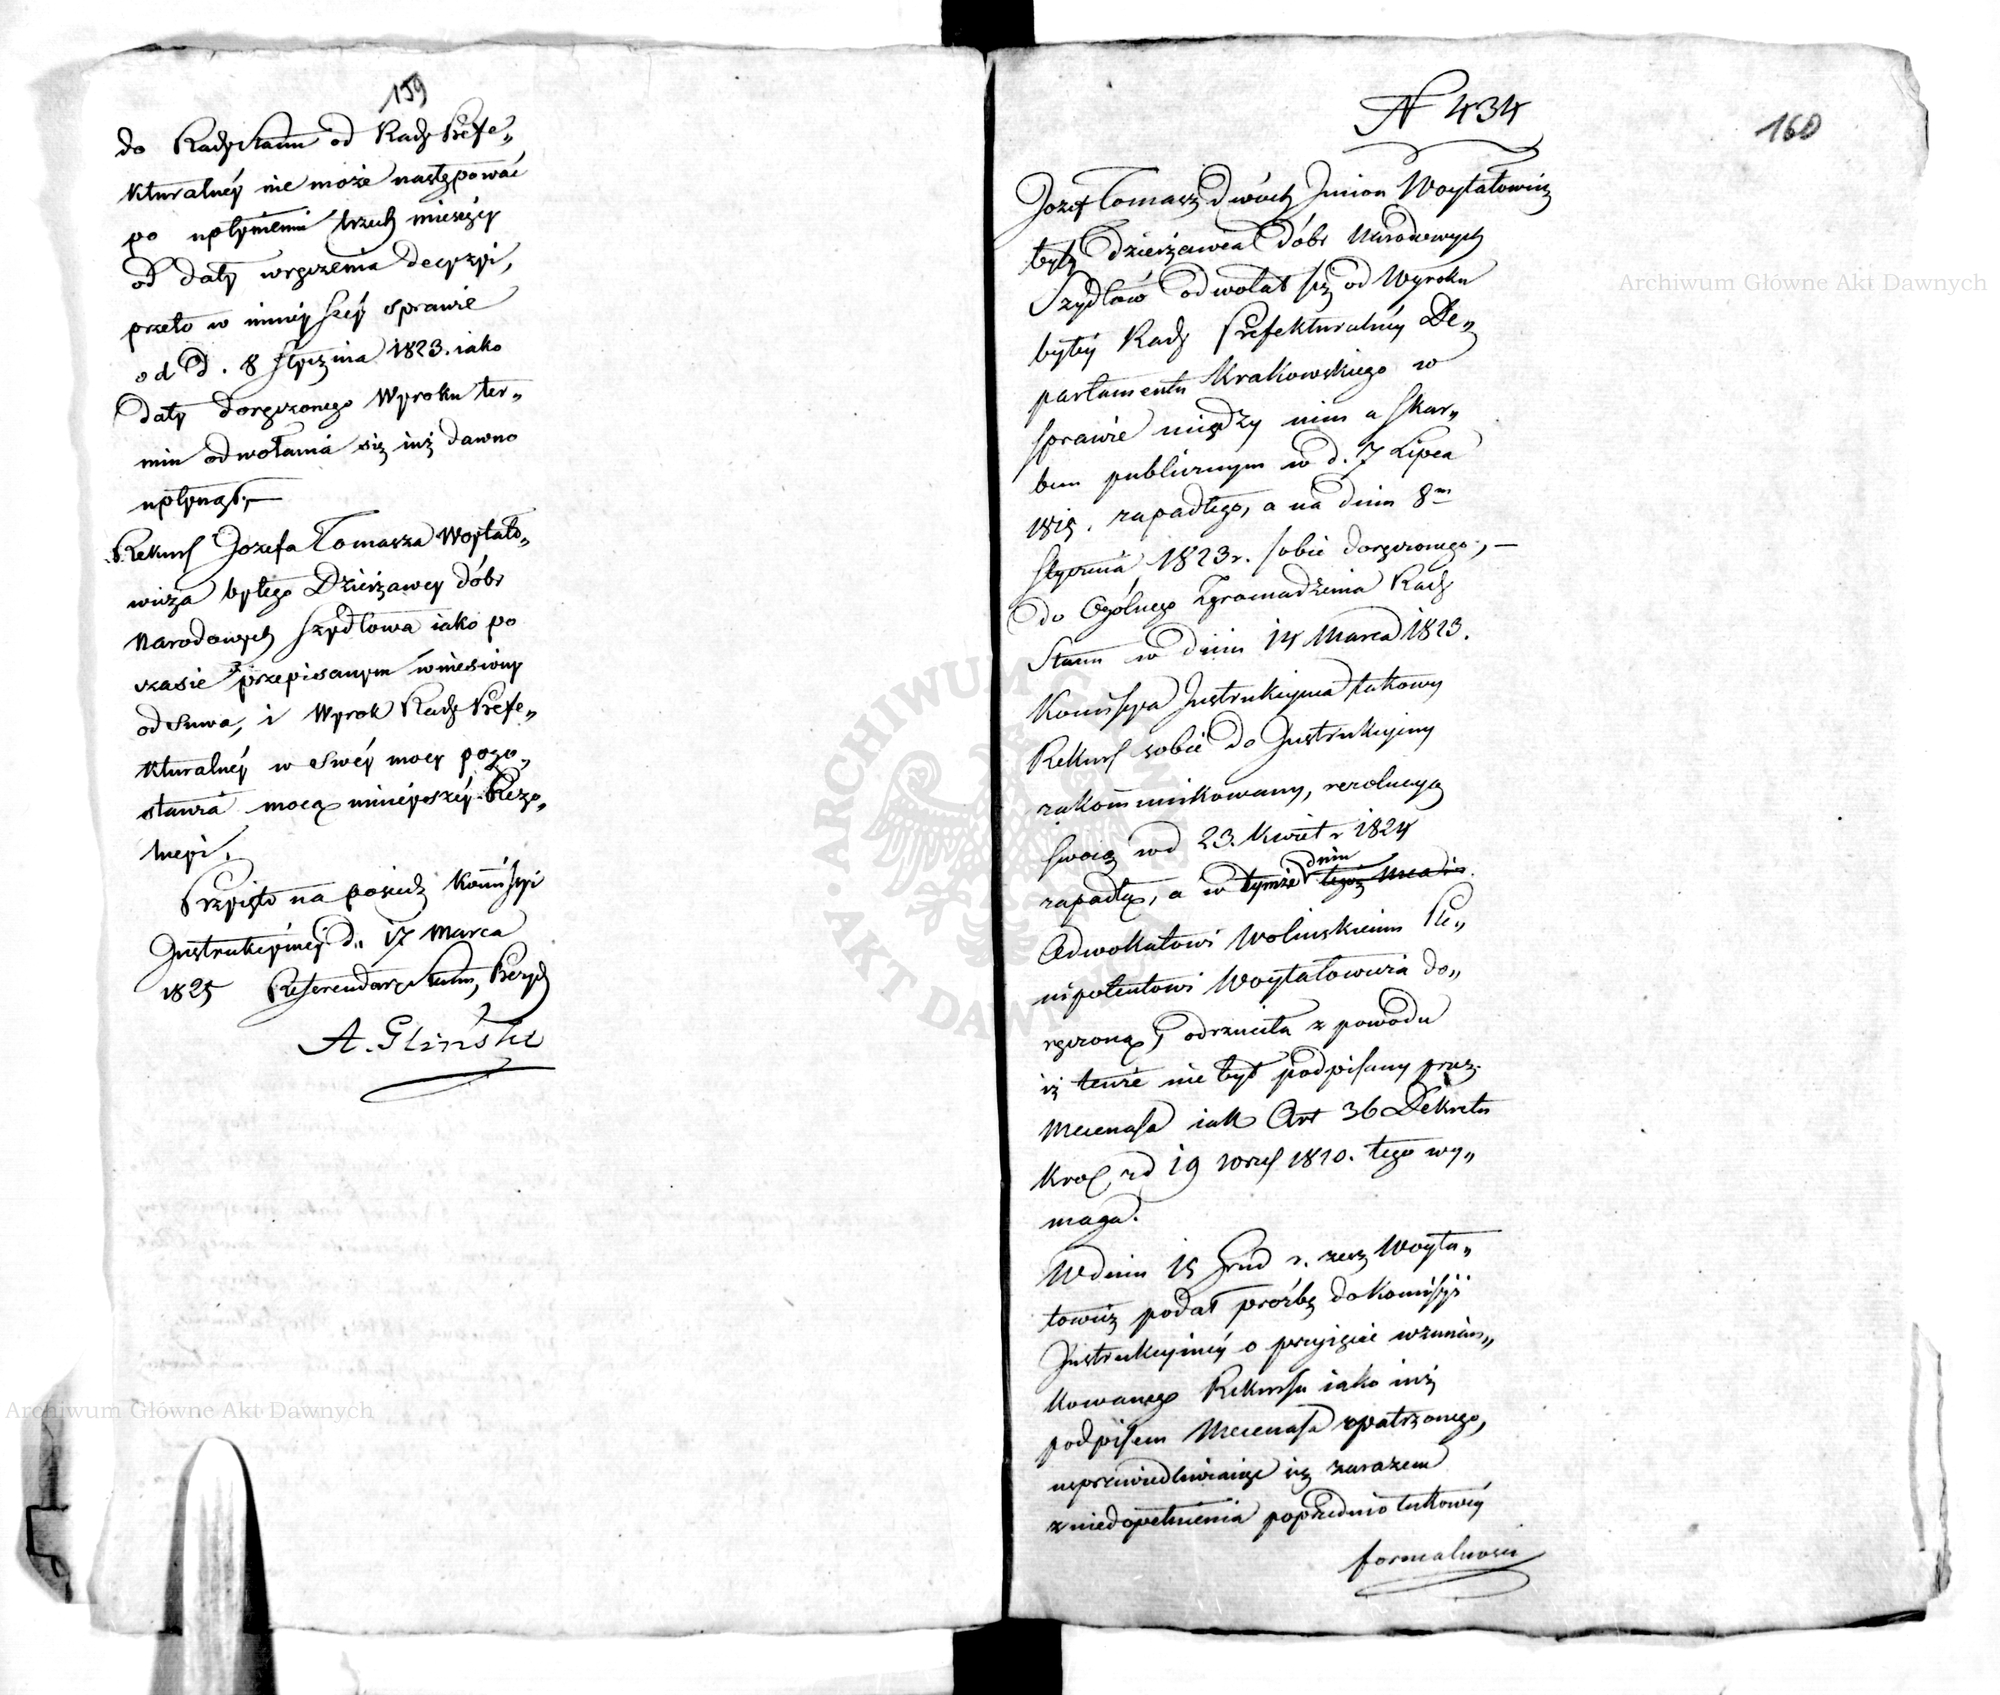 159
do Rady Stanu od Rady Prefe„
kturalnéy nie może następować
po upłynieniu trzech miesięcy
od daty wręczenia decyzyi,
przeto w ninieyszéy sprawie
od d. 8 Stycznia 1823. iako
daty doręczonego Wyroku ter„
min odwołania się iuż dawno
upłynął,—
Rekurs Jozefa Tomasza Woytało„
wicza byłego Dzierżawcy dóbr
Narodowych Szydłowa iako po
czasie przepisanym wniesiony
odsuwa, i Wyrok Rady Prefe„
kturalnéy w swéy mocy pozo„
stawia mocą ninieyszéy Rezo„
lucyi.
Przyięto na posiedz Kommissyi
Instrukcyinéy d. 17 Marca
1825 Referendarz Stanu, Prezyd
A. Gliński
N 434
160
Jozef Tomasz dwóch Imion Woytałowicz
były Dzierżawca dóbr Narodowych
Szydłów odwołał się od Wyroku
byłéy Rady Prefekturalnéy De„
partamentu Krakowskiego w
sprawie między nim a Skar„
bem publicznym w d. 7 Lipca
1815. zapadłego, a na dniu 8m
Stycznia 1823 r. sobie doręczonego,—
do Ogólnego Zgromadzenia Rady
Stanu w dniu 14 Marca 1823.
Kommissya Instrukcyina takowy
Rekurs sobie do Instrukcyiny
zakommunikowany, rezolucyą
swoią w d 23. Kwiet r 1824
zapadłą, a w tymże dniu tegoż
Adwokatowi Wolinskiemu Ple„
nipotentowi Woytałowicza do„
ręczoną, odrzuciła z powodu
iż tenże nie był podpisany przez
Mecenasa iak Art 36 Dekretu
Król z d 19 Wrześ 1810. tego wy„
maga.
W dniu 15 Grud r. zesz Woyta„
łowicz podał proźbę do Kommissyi
Instrukcyinéy o przyięcie wzmian„
kowanego Rekursu iako iuż
podpisem Mecenasa opatrzonego,
usprawiedliwiaiąc się zarazem
z niedopełnienia poprzednio takowéy
formalnosci
Archiwum Główne Akt Dawnych
Archiwum Główne Akt Dawnych
ARCHIWUM GŁÓWNE AKT DAWNYCH